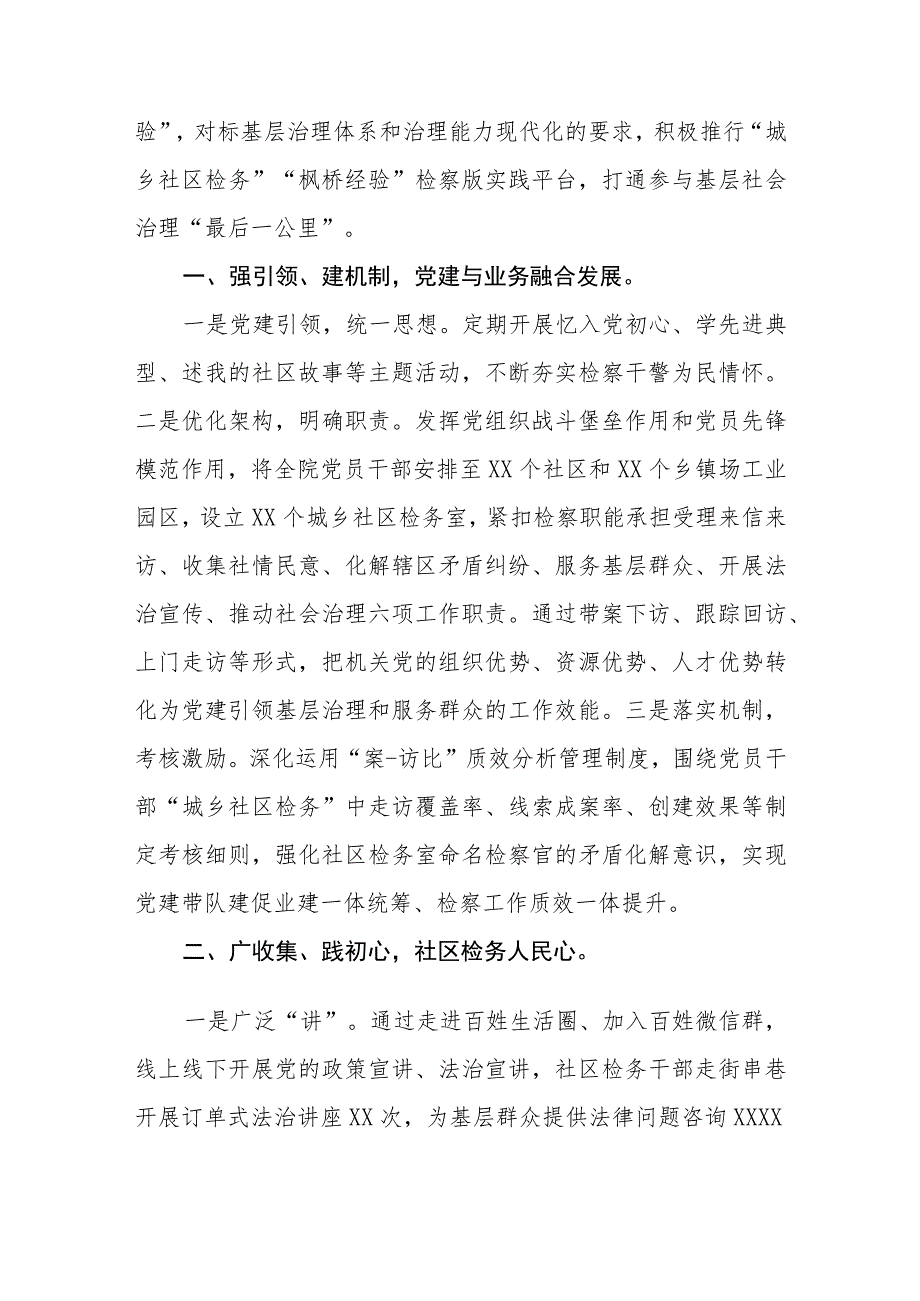 验”，对标基层治理体系和治理能力现代化的要求，积极推行“城
乡社区检务”“枫桥经验”检察版实践平台，打通参与基层社会
治理“最后一公里”。
一、强引领、建机制，党建与业务融合发展。
一是党建引领，统一思想。定期开展忆入党初心、学先进典
型、述我的社区故事等主题活动，不断夯实检察干警为民情怀。
二是优化架构，明确职责。发挥党组织战斗堡垒作用和党员先锋
模范作用，将全院党员干部安排至 XX 个社区和 XX 个乡镇场工业
园区，设立 XX 个城乡社区检务室，紧扣检察职能承担受理来信来
访、收集社情民意、化解辖区矛盾纠纷、服务基层群众、开展法
治宣传、推动社会治理六项工作职责。通过带案下访、跟踪回访、
上门走访等形式，把机关党的组织优势、资源优势、人才优势转
化为党建引领基层治理和服务群众的工作效能。三是落实机制，
考核激励。深化运用“案-访比”质效分析管理制度，围绕党员干
部“城乡社区检务”中走访覆盖率、线索成案率、创建效果等制
定考核细则，强化社区检务室命名检察官的矛盾化解意识，实现
党建带队建促业建一体统筹、检察工作质效一体提升。
二、广收集、践初心，社区检务人民心。
一是广泛“讲”。通过走进百姓生活圈、加入百姓微信群，
线上线下开展党的政策宣讲、法治宣讲，社区检务干部走街串巷
开展订单式法治讲座 XX 次，为基层群众提供法律问题咨询 XXXX